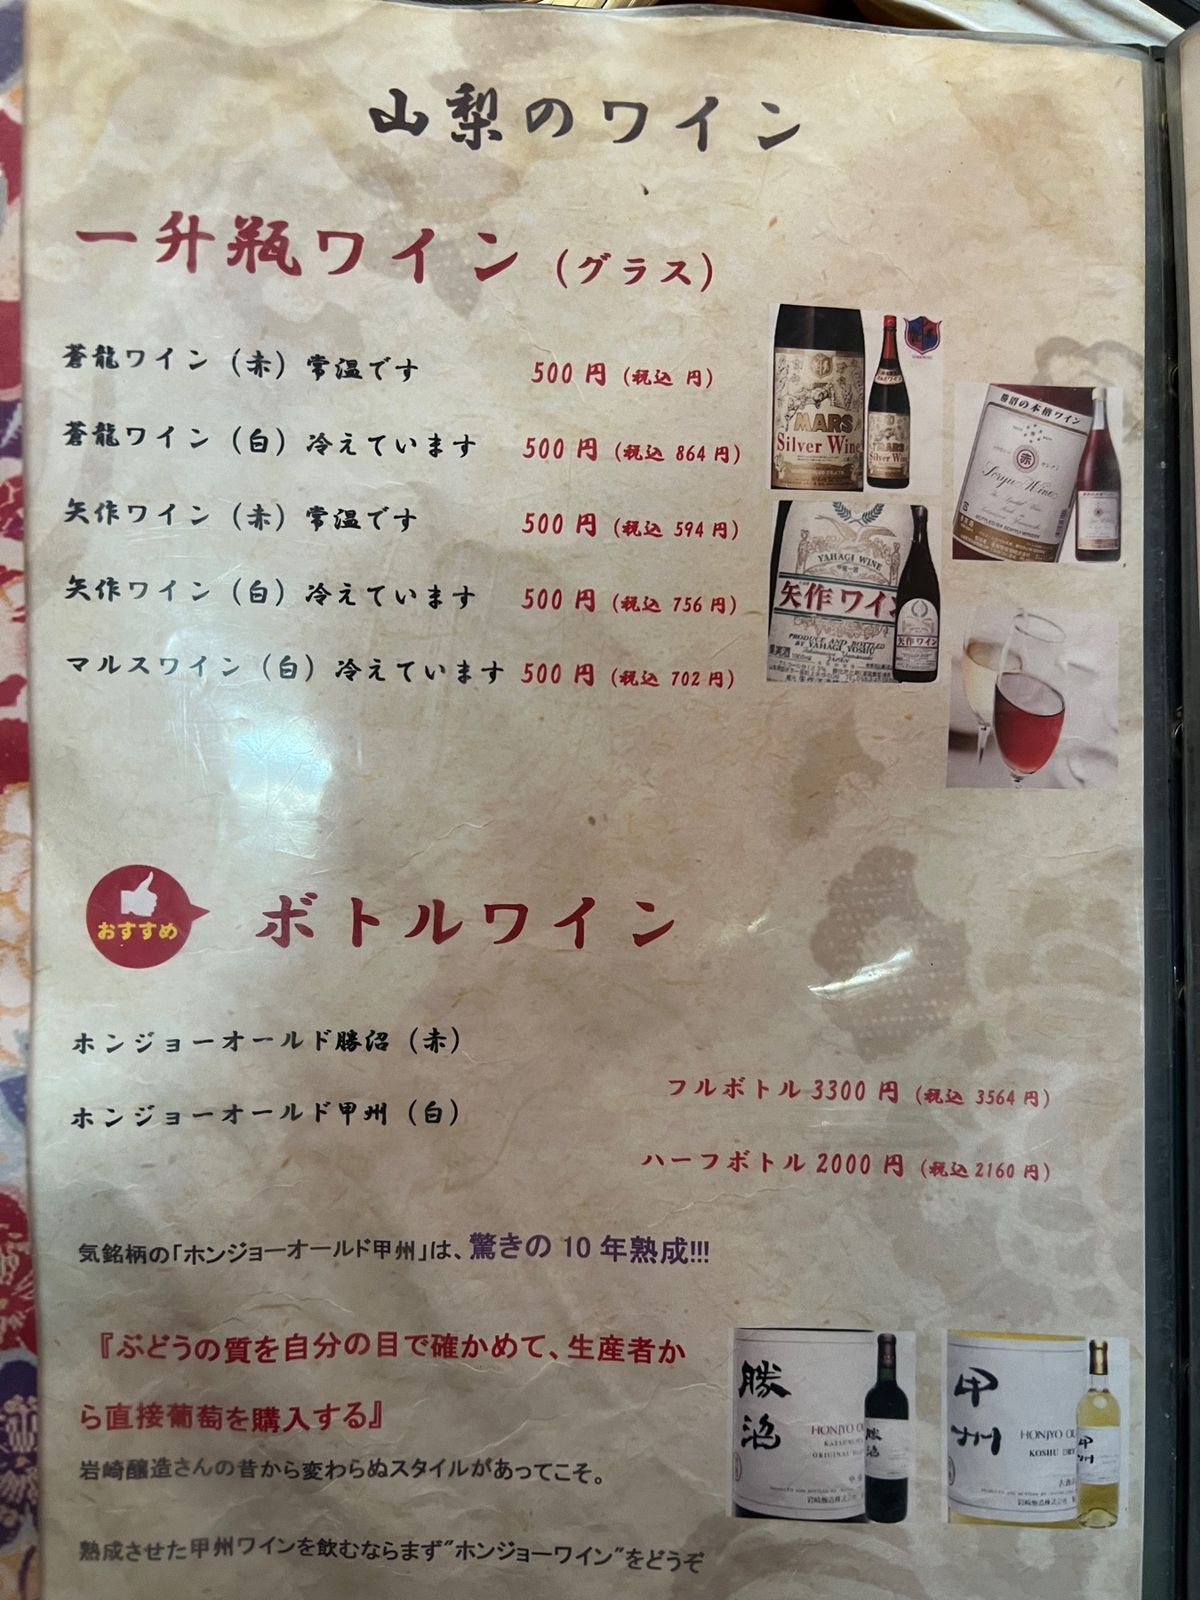 山梨のワイン
一升瓶ワイン（グラス）
蒼龍ワイン（赤）常温です 500円（税込 円）
蒼龍ワイン（白）冷えています 500円（税込 864円）
矢作ワイン（赤）常温です 500円（税込 594円）
矢作ワイン（白）冷えています 500円（税込 756円）
マルスワイン（白）冷えています 500円（税込 702円）
MARS
Silver Wine
MARS
Silver Wine
勝沼の本格ワイン
赤
Soryu Wine
YAHAGI WINE
矢作ワイン
PRODUCE AND BOTTLED
BY YAHAGI YOSHU
JAPAN
矢作ワイン
おすすめ
ボトルワイン
ホンジョーオールド勝沼（赤）
ホンジョーオールド甲州（白）
フルボトル3300円（税込 3564円）
ハーフボトル2000円（税込2160円）
気銘柄の「ホンジョーオールド甲州」は、驚きの10年熟成!!!
『ぶどうの質を自分の目で確かめて、生産者か
ら直接葡萄を購入する』
岩崎醸造さんの昔から変わらぬスタイルがあってこそ。
熟成させた甲州ワインを飲むならまず"ホンジョーワイン"をどうぞ
勝沼
HONJYO
勝沼
甲州
HONJYO
KOSHU
甲州